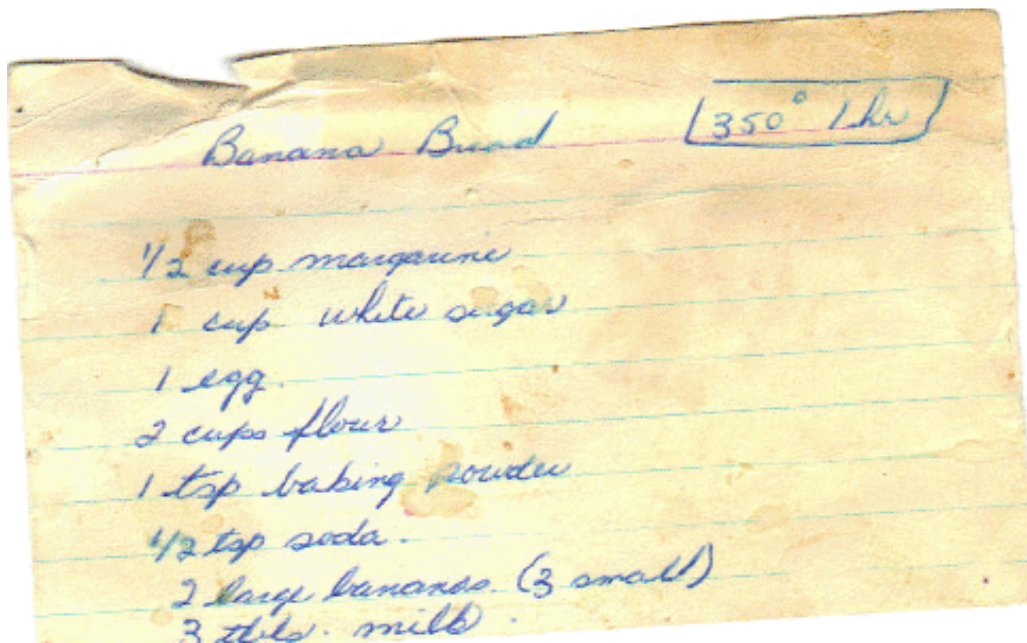 Banana Bread 350° 1 hr
1/2 cup margarine
1 cup white sugar
1 egg.
2 cups flour
1 tsp baking powder
1/2 tsp soda.
2 large bananas (3 small)
3 tbls. milk.